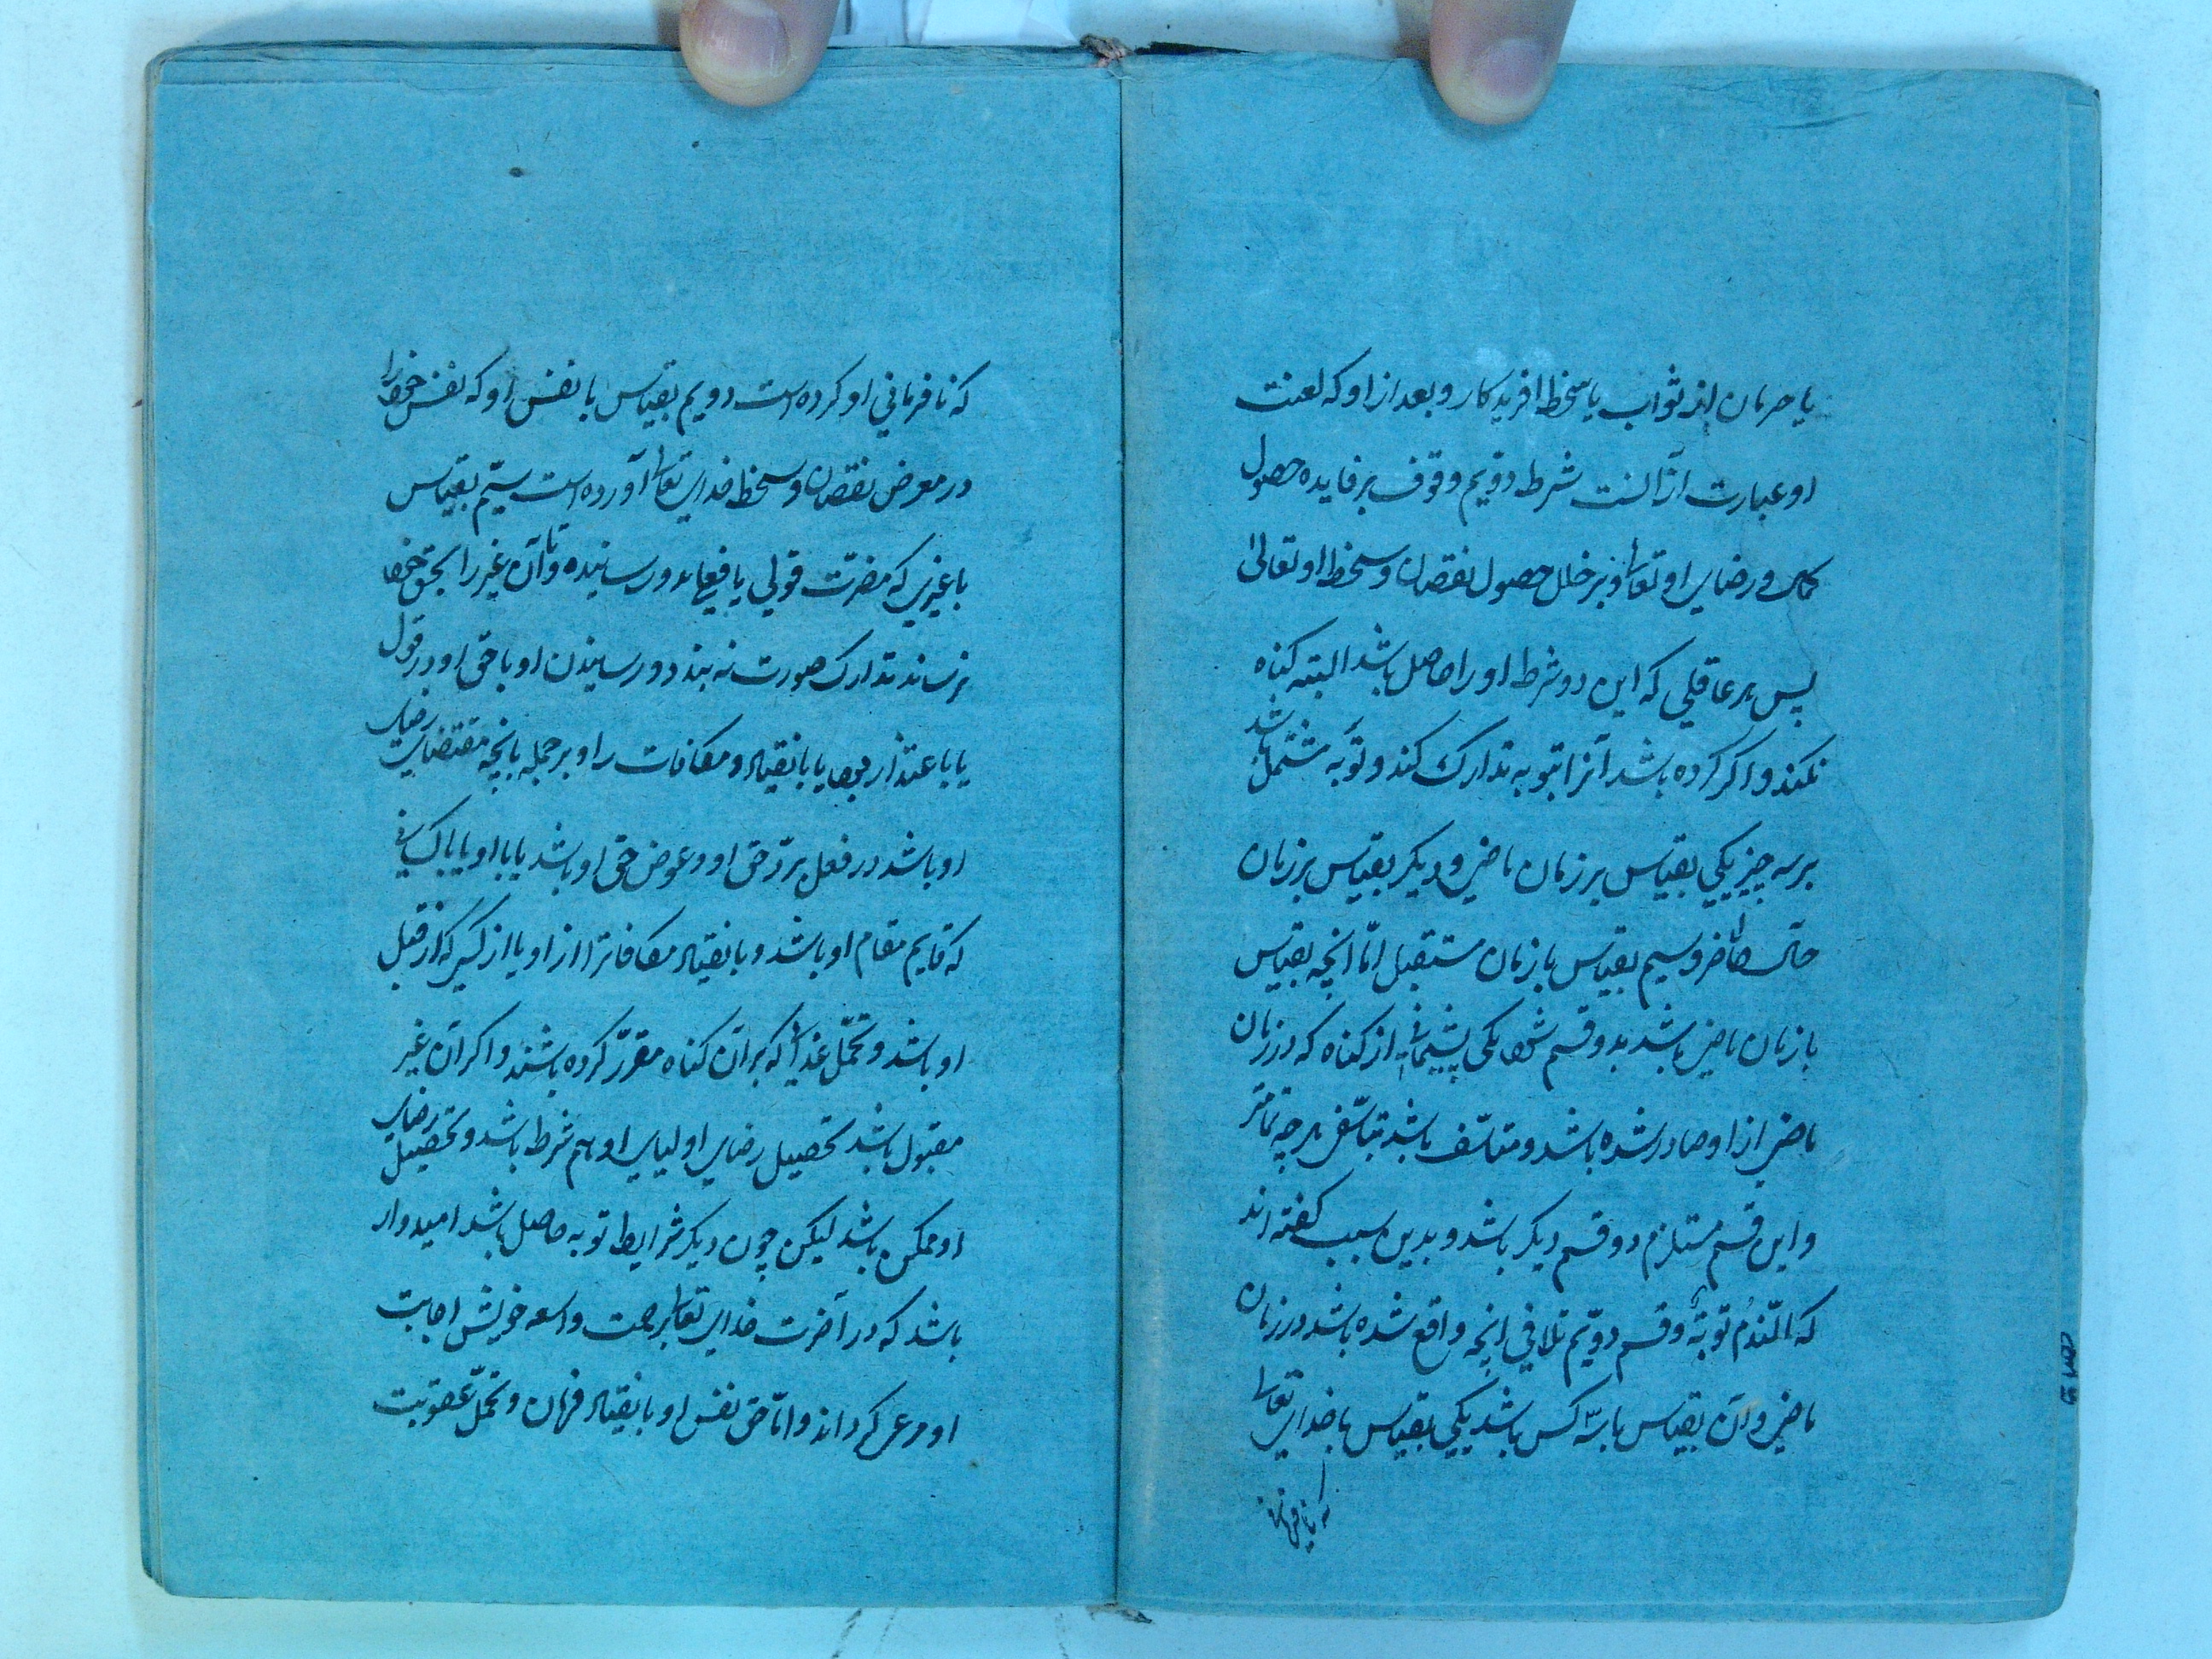 یا حرمان از ثواب یا سخط افریدکار و بعد از او که لعنت
او عبارت ازانست شرط دویم وقوف بر فایده حصول
کمال و رضای او تعالی و بر خلل حصول نقصان و سخط او تعالی
پس هر عاقلی که این دو شرط او را حاصل باشد البته کناه
نکند و اکر کرده باشد آنرا بتوبه تدارک کند و توبه مشتمل باشد
بر سه چیز یکی بقیاس بر زمان ماضی و دیکر بقیاس بر زمان
حاضر و سیم بقیاس با زمان مستقبل امّا انچه بقیاس
با زمان ماضی باشد بدو قسم شود یکی پشیمانی از کناه که در زمان
ماضی از او صادر شده باشد و متاسّف باشد بتاسّفی هر چه تمامتر
و این قسم مستلزم دو قسم دیکر باشد و بدین سبب کفته اند
که النّدمُ توبةٌ و قسم دویّم تلافی انچه واقع شده باشد در زمان
ماضی و آن بقیاس با سّه کس باشد یکی بقیاس با خدای تعالی
که نافرمانی
که نافرمانی او کرده است دویم بقیاس با نفس او که نفس خود را
در معرض نقصان و سخط خدای تعالی آورده است سیّم بقیاس
با غیری که مضرّت قولی یا فعلی بدو رسانیده و تا آن غیر را بحق خود
نرساند تدارک صورت نه بندد و رسانیدن او با حق او در قول
یا باعتذار بود یا بانقیاد مکافات را و بر جمله بانچه مقتضای رضای
او باشد در فعل بردّ حق او و عوض حق او باشد یا با او یا با کسی
که قایم مقام او باشد و بانقیاد مکافاترا از او یا از کسی که از قبل
او باشد و تحمّل عذابی که بر آن کناه مقرّر کرده باشند و اکر آن غیر
مقتول باشد تحصیل رضای اولیای او هم شرط باشد و تحصیل رضای
او ممکن باشد لیکن چون دیکر شرایط توبه حاصل باشد امیدوار
باشد که در آخرت خدای تعالی برحمت واسعه خویش اجابت
او مرعی کرداند و امّا حق نفس او بانقیاد فرمان و تحمّل عقوبت